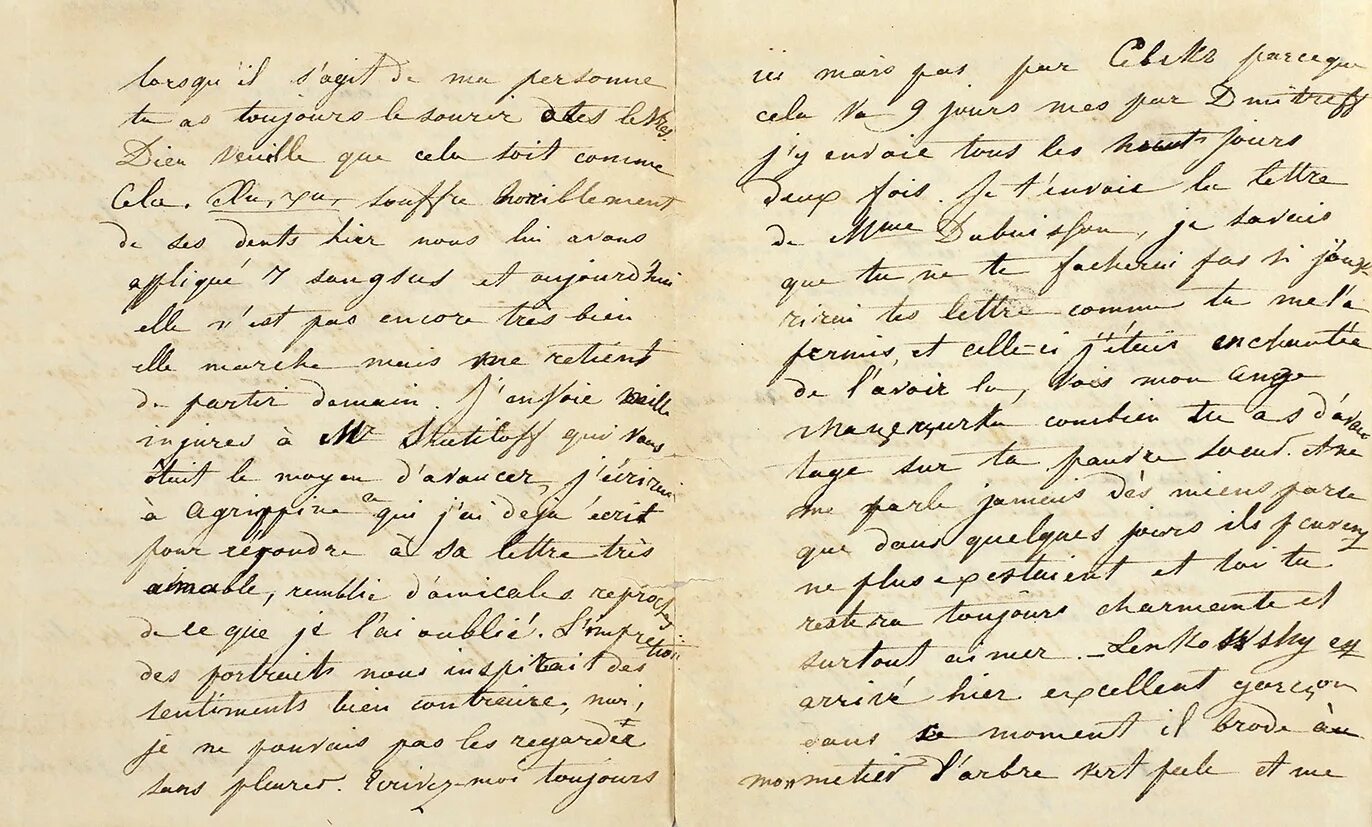 lorsqu'il s'agit de ma personne
tu as toujours le sourir des
Dieu veuille que cela soit comme
Cela. souffre horriblement
de ses dents hier nous lui avons
appliqué 7 sangsus et aujourd'hui
elle n'est pas encore très bien
elle marche mais me retient
de partir demain. J'envoie mille
injures à Mr qui vous
ôtait le moyen d'avancer, j'écrirai
à Agrippine a qui j'ai deja écrit
pour répondre à sa lettre très
aimable, remblie d'amicales reproches
de ce que je l'ai oublié. L'impression
des portraits nous inspirait des
sentiments bien contraire, moi,
je ne pouvais pas les regarder
sans pleurer. Ecrivez-moi toujours
ici mais pas par parceque
cela va 9 jours mes par Dmitreff
j'y envoie tous les jours
deux fois. Je t'envoie la lettre
de Mme Dubuisson, je savais
que tu ne te facherai pas si j'ouv
rirai tes lettre comme tu me l'a
permis, et celle-ci j'étais enchantée
de l'avoir lu, Vois mon ange
combien tu as d'avan
tage sur ta pauvre soeur. et ne
me parle jamais dès miens parse
que dans quelques jours ils peuvent
ne plus et toi tu
restera toujours charmante et
surtout aimer. - Lenkowsky est
arrivé hier excellent garçon
dans se moment il brode àu
mon metier l'arbre vert et me